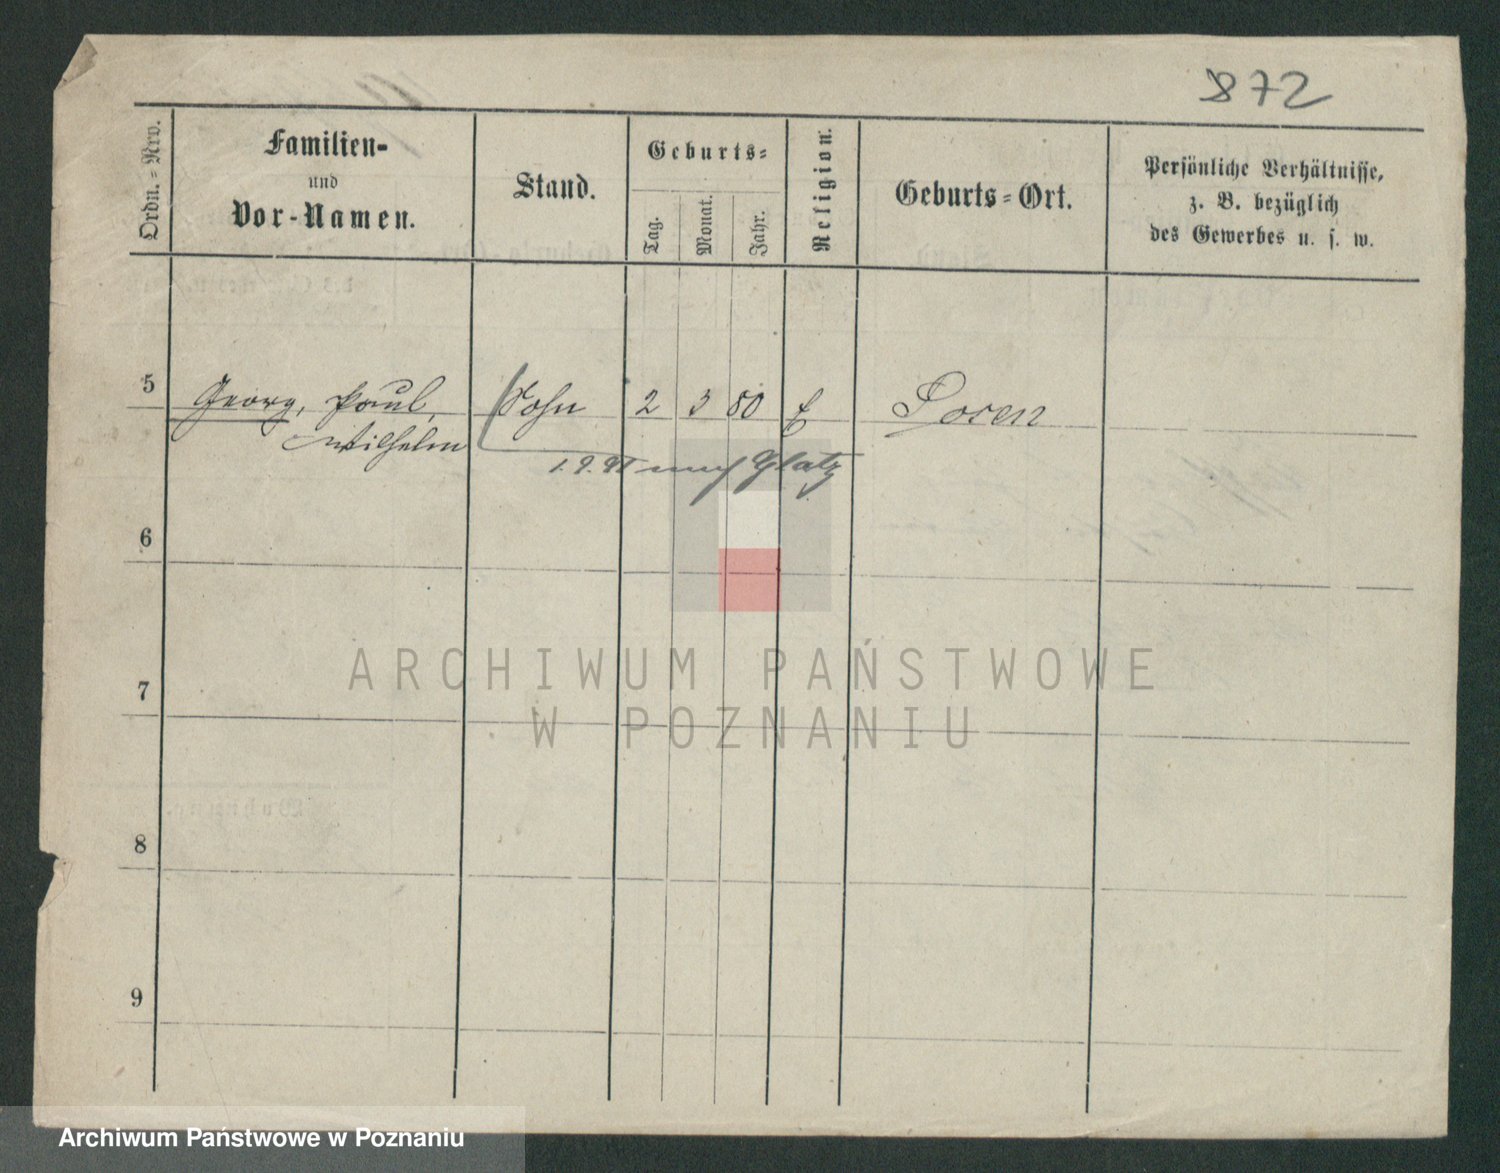 872
Ordn.=Nro.
Familien-
und
Vor-Namen.
Stand.
Geburts=
Tag.
Monat.
Jahr.
Religion.
Geburts=Ort.
Persönliche Verhältnisse,
z. B. bezüglich
des Gewerbes u. s. w.
5
Georg, Paul,
Wilhelm
Sohn
2
3
80
E
Posen
1.9.91 nach Glatz
6
7
8
9
ARCHIWUM PAŃSTWOWE
W POZNANIU
Archiwum Państwowe w Poznaniu